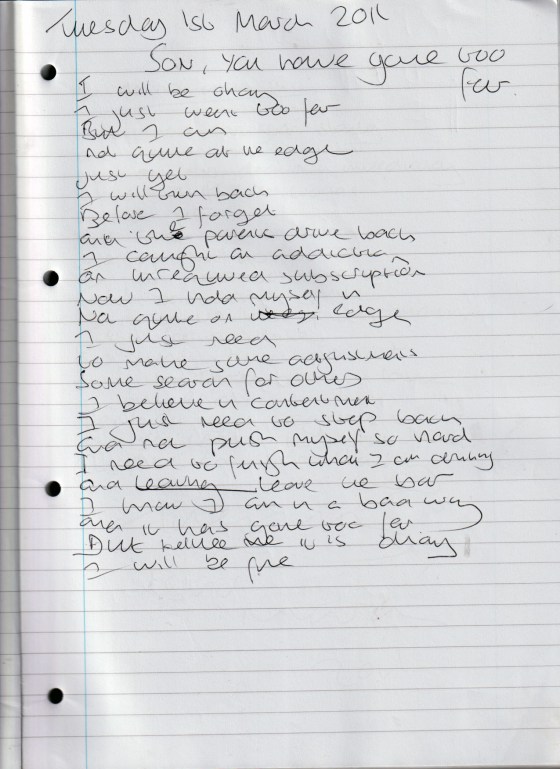 Tuesday 1st March 2011
Son, you have gone too
far
I will be okay
I just went too far
But I am
not quite at the edge
just yet
I will turn back
Before I forget
and the parents drive back
I caught an addiction
an unrequired subscription
Now I hold myself in
Not quite on edge
I just need
to make some adjustments
Some search for others
I believe in contentment
I just need to step back
and not push myself so hard
I need to finish what I am drinking
and leaving leave the bar
I know I am in a bad way
and it has gone too far
But believe me it is okay
I will be fine